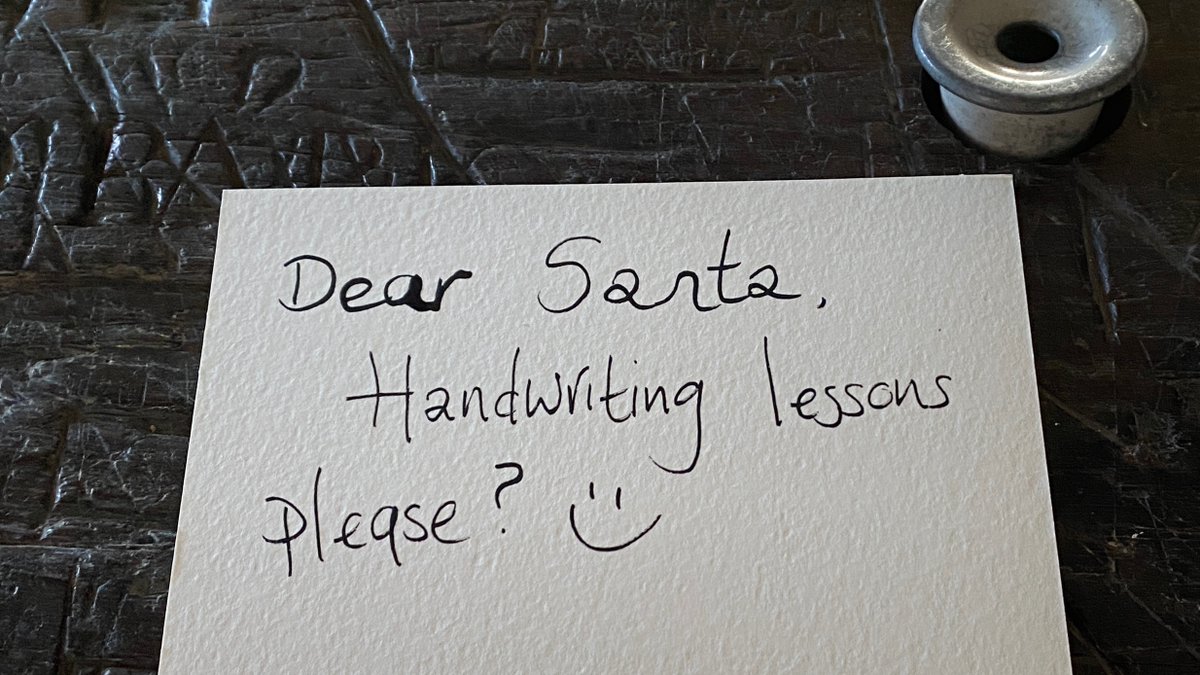 Dear Santa,
Handwriting lessons
please? :)